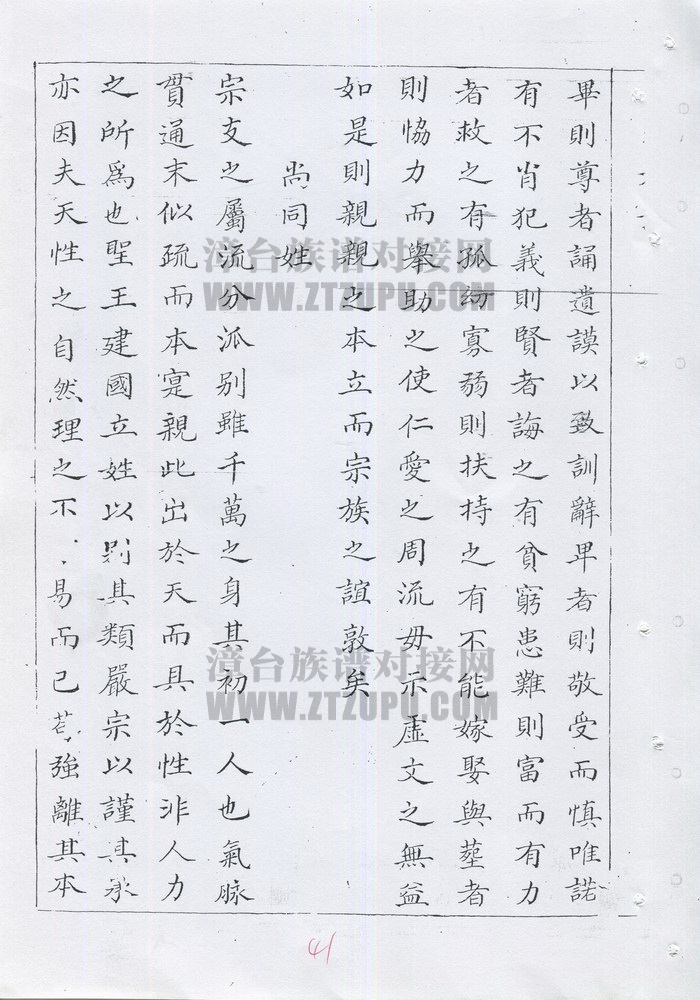 畢則尊者誦遺謨以致訓辭卑者則敬受而慎唯諾
有不肖犯義則賢者誨之有貧窮患難則富而有力
者救之有孤幼寡弱則扶持之有不能嫁娶與塟者
則恊力而舉助之使仁愛之周流毋示虛文之無益
如是則親親之本立而宗族之誼敦矣
尚同姓
宗支之屬流分派别雖千萬之身其初一人也氣脉
貫通末似疏而本寔親此出於天而具於性非人力
之所為也聖王建國立姓以别其類嚴宗以謹其承
亦因夫天性之自然理之不易而已若強離其本
漳台族谱对接网
WWW.ZTZUPU.COM
漳台族谱对接网
WWW.ZTZUPU.COM
41